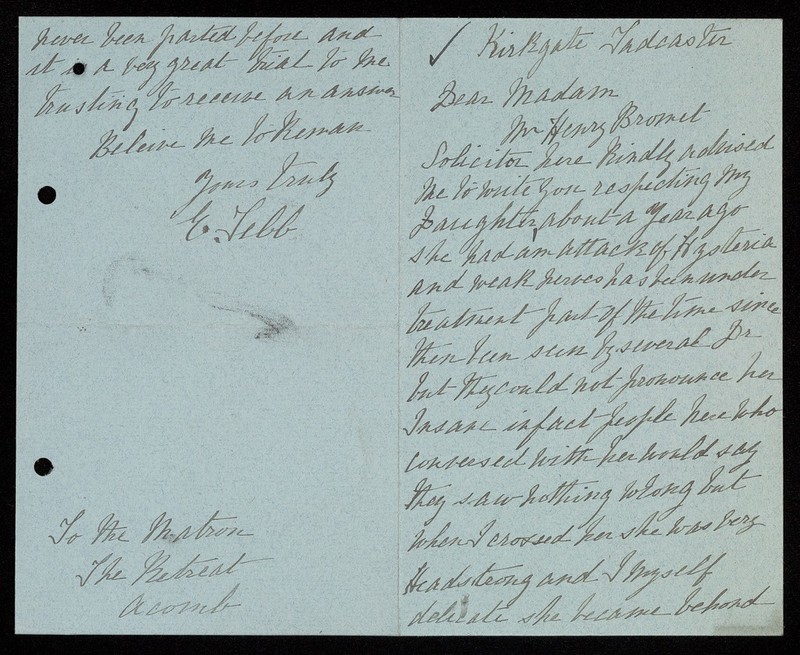 Kirkgate Tadcaster
Dear Madam
Mr Henry Bromet
Solicitor here kindly advised
me to write you respecting my
Daughter, about a Year ago
she had an attack of Hysteria
and weak nerves has been under
treatment part of the time since
then been seen by several Dr
but they could not pronounce her
Insane infact people here who
conversed with her would say
they saw nothing wrong but
when I crossed her she was very
Headstrong and I myself
delicate she became behond
never been parted before and
it is a very great trial to me
trusting to receive an answer
Beleive me to Remain
Yours truly
E. Tebb
To the Matron
The Retreat
Acomb